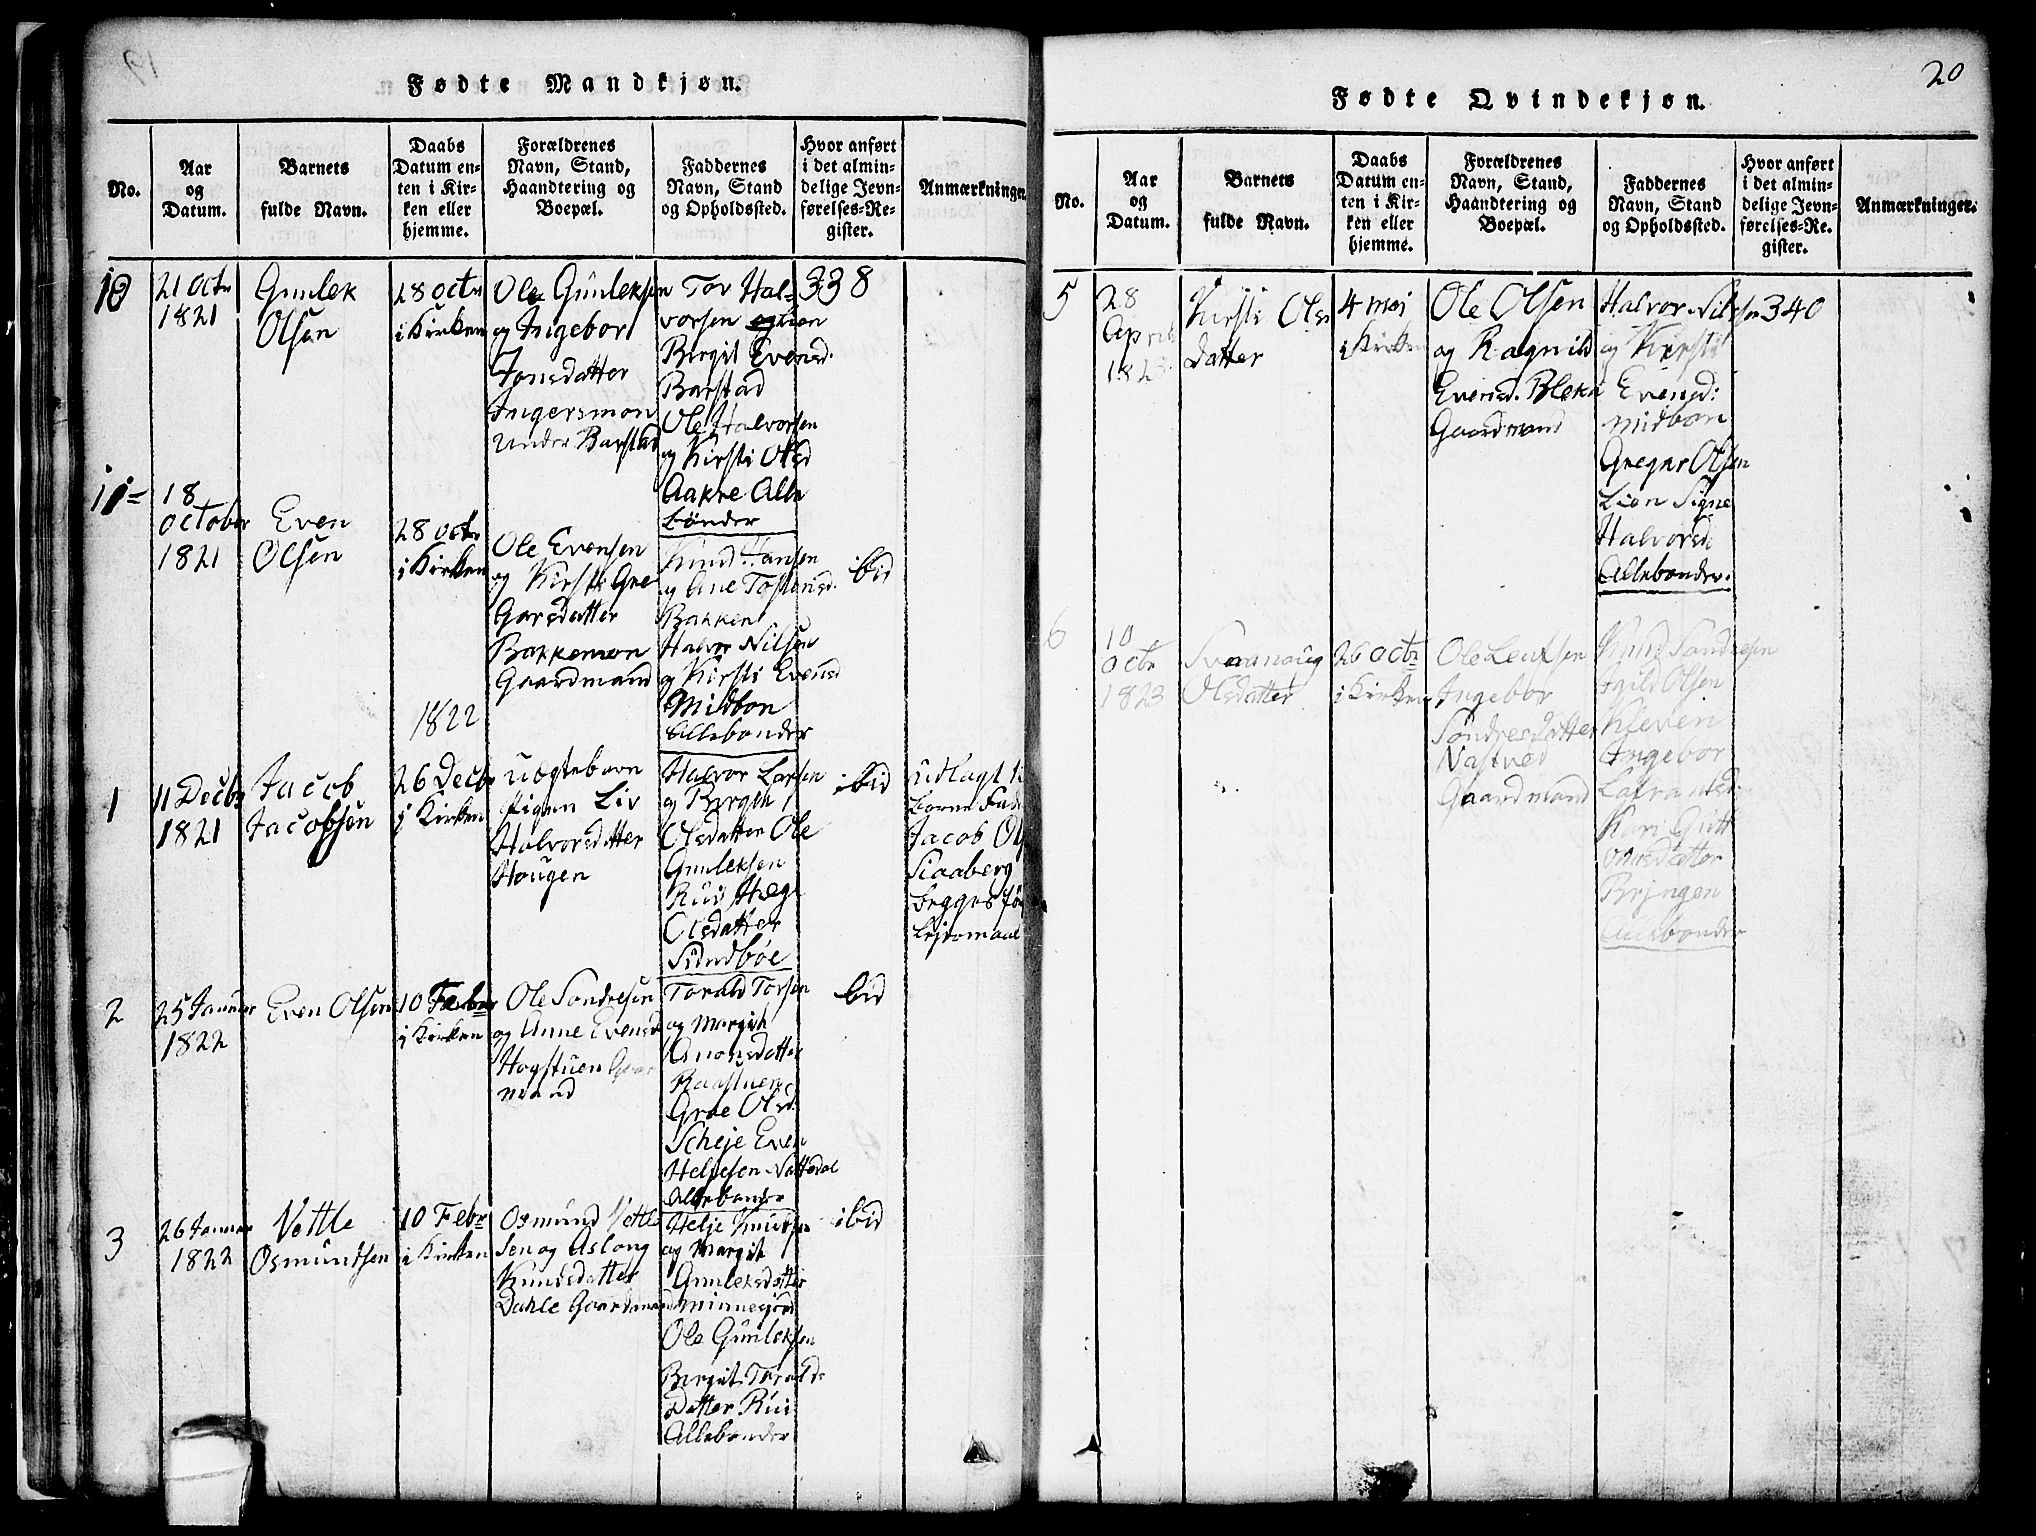 Fødte Mandkjøn.
No.
Aar
og
Datum.
Barnets
fulde Navn.
Daabs
Datum en-
ten i Kir-
ken eller
hjemme.
Forældrenes
Navn, Stand,
Haandtering og
Boepæl.
Faddernes
Navn, Stand
og Opholdssted.
Hvor anført
i det almin-
delige Jevn-
førelses-Re-
gister.
Anmærkninger
10
21 Octr
1821
Gunlek
Olsen
28 octr
i Kirken
Ole Gunleksen
og Ingebor
Jonsdatter
Ingersmon
under Barstad
Tor Hal-
vorsen
Birgit Evensd.
Barstad
Ole Halvorsen
og Kirsti Olsd
Aakre Alle
bønder
338
11
18
October
1821
Even
Olsen
28 octr
i Kirken
Ole Evensen
og Kirsti Gre
Garsdatter
Bakkemon
Gaardmand
Knud Hansen
og Ane Tostensd.
Bakken
Halvor Nilsen
og Kirsti Evensd
Midbon
Allebonder
ibid
1822
1
11 Decbr
1821
Jacob
Jacobsen
26 Decbr
i Kirken
uægtebarn
Pigen Liv
Halvorsdatter
Hougen
Halvor Larsen
og Birgith
Olsdatter Ole
Gunleksen
Rui Hæge
Olsdatter
Sundbøe
ibid
udlagt til
barne Fad
Jacob Ol
Skaaberg
begges før
lejermaal
2
25 Januar
1822
Even Olsen
10 Febr
i Kirken
Ole Sondresen
og Anne Evensd
Hogstuen Gaar
mand
Torald Torsen
og Margith
Amonsdatter
Raastuen
Groe Olsd
Scheje Even
Helgesen Nattedal
Allebonder
ibid
3
26 Januar
1822
Vettle
Osmundsen
10 Febr
i Kirken
Osmund Vettle
sen og Aslong
Knudsdatter
Dahle Gaardmand
Helje Knudsen
og Margit
Gunleksdatter
Minnesjord
Ole Gunleksen
Birgit Torald
Datter Rui
Allebonder
ibid
20
Fødte Qvindekjøn.
No.
Aar
og
Datum.
Barnets
fulde Navn.
Daabs
Datum en-
ten i Kir-
ken eller
hjemme.
Forældrenes
Navn, Stand,
Haandtering og
Boepæl.
Faddernes
Navn, Stand
og Opholdssted.
Hvor anført
i det almin-
delige Jevn-
førelses-Re-
gister.
Anmærkninger.
5
28
April
1823
Kirsti Ols
Datter
4 Maj
i Kirken
Ole Olsen
og Ragnild
Evensd. Bleka
Gaardmand
Halvor Nilsen
og Kirsti
Evensd:
Midbon
Gregar Olsen
Lien Signe
Halvorsd.
Allebonder.
340
6
10
octr
1823
Svanaug
Olsdatter
26 octr
i Kirken
Ole Leufsen
Ingebor
Sondresdatter
Nastved
Gaardmand
Knud Sondresen
Olsen
Kleven
Ingebor
Lafrantsd.
Kari Gutt
ormsdatter
Bringen
Allebonder